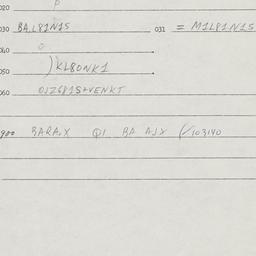 020 P
030 BA.L81N15 031 = M1L81N15
040 0
050 )KL80NK1
060 01Z681S+VENKT
900 BARA.X Q1 BA AJX (/103140